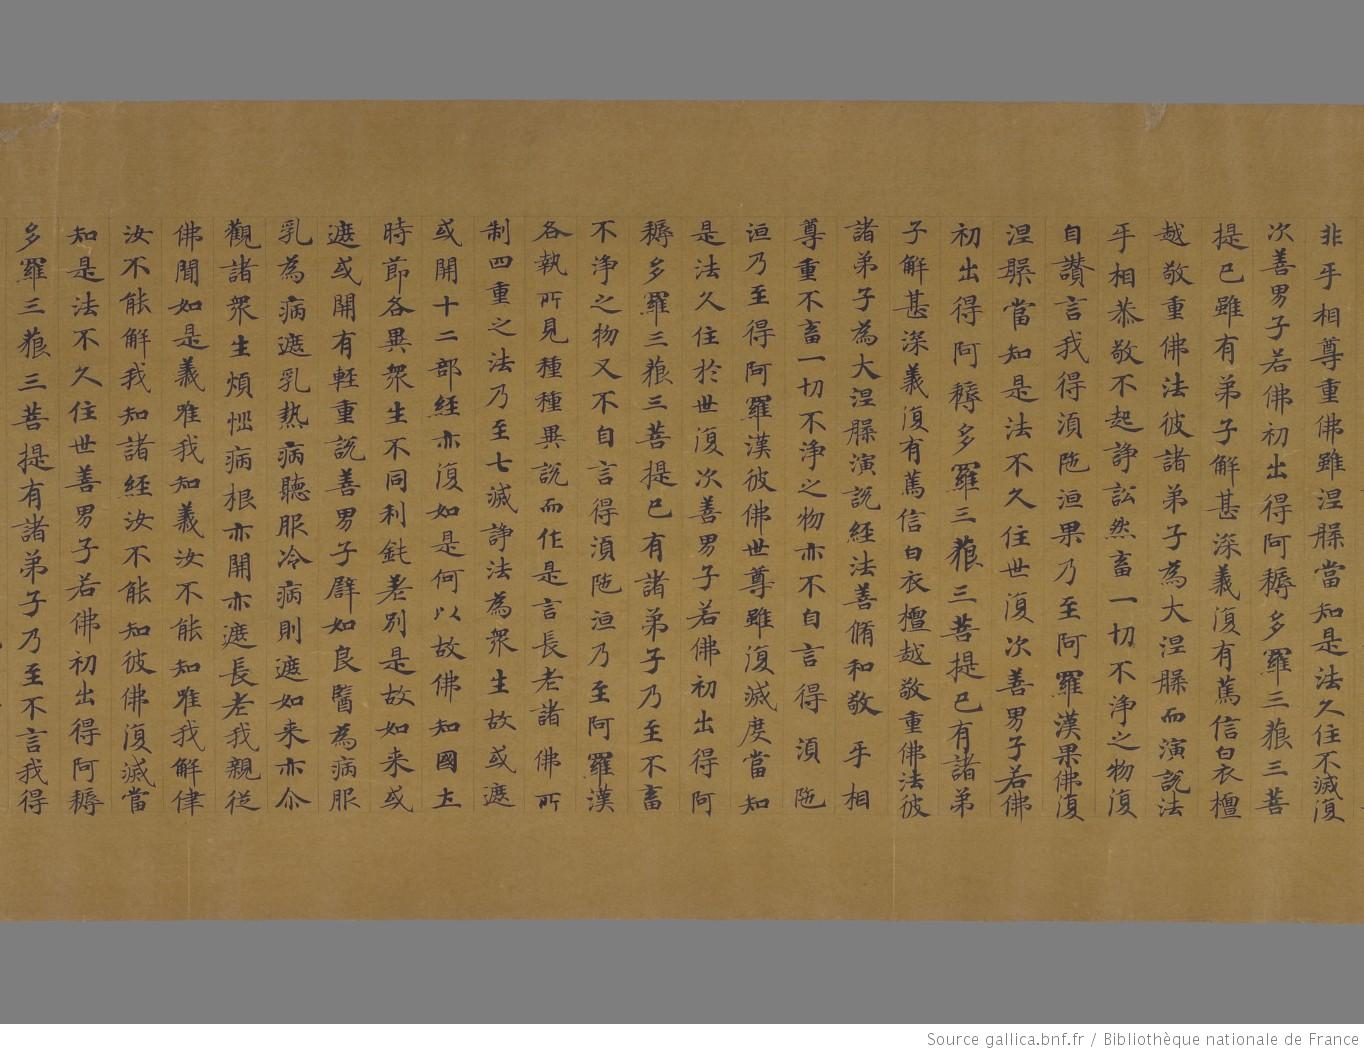 非乎相尊重佛雖涅槃當知是法久住不滅復
次善男子若佛初出得阿耨多羅三藐三菩
提已雖有弟子解甚深義復有篤信白衣檀
越敬重佛法彼諸弟子為大涅槃而演說法
乎相恭敬不起諍訟然畜一切不淨之物復
自讚言我得湏陁洹果乃至阿羅漢果佛復
涅槃當知是法不久住世復次善男子若佛
初出得阿耨多羅三藐三菩提已有諸弟
子解甚深義復有篤信白衣檀越敬重佛法彼
諸弟子為大涅槃演說經法善脩和敬乎相
尊重不畜一切不淨之物亦不自言得湏陁
洹乃至得阿羅漢彼佛世尊雖復滅度當知
是法久住於世復次善男子若佛初出得阿
耨多羅三藐三菩提已有諸弟子乃至不畜
不淨之物又不自言得湏陁洹乃至阿羅漢
各執所見種種異說而作是言長老諸佛所
制四重之法乃至七滅諍法為衆生故或遮
或開十二部經亦復如是何以故佛知國土
時節各異衆生不同利鈍差別是故如来或
遮或開有輕重說善男子譬如良醫為病服
乳為病遮乳熱病聽服冷病則遮如来亦尒
觀諸衆生煩惱病根亦開亦遮長老我親従
佛聞如是義唯我知義汝不能知唯我解律
汝不能解我知諸經汝不能知彼佛復滅當
知是法不久住世善男子若佛初出得阿耨
多羅三藐三菩提有諸弟子乃至不言我得
Source gallica.bnf.fr / Bibliothèque nationale de France